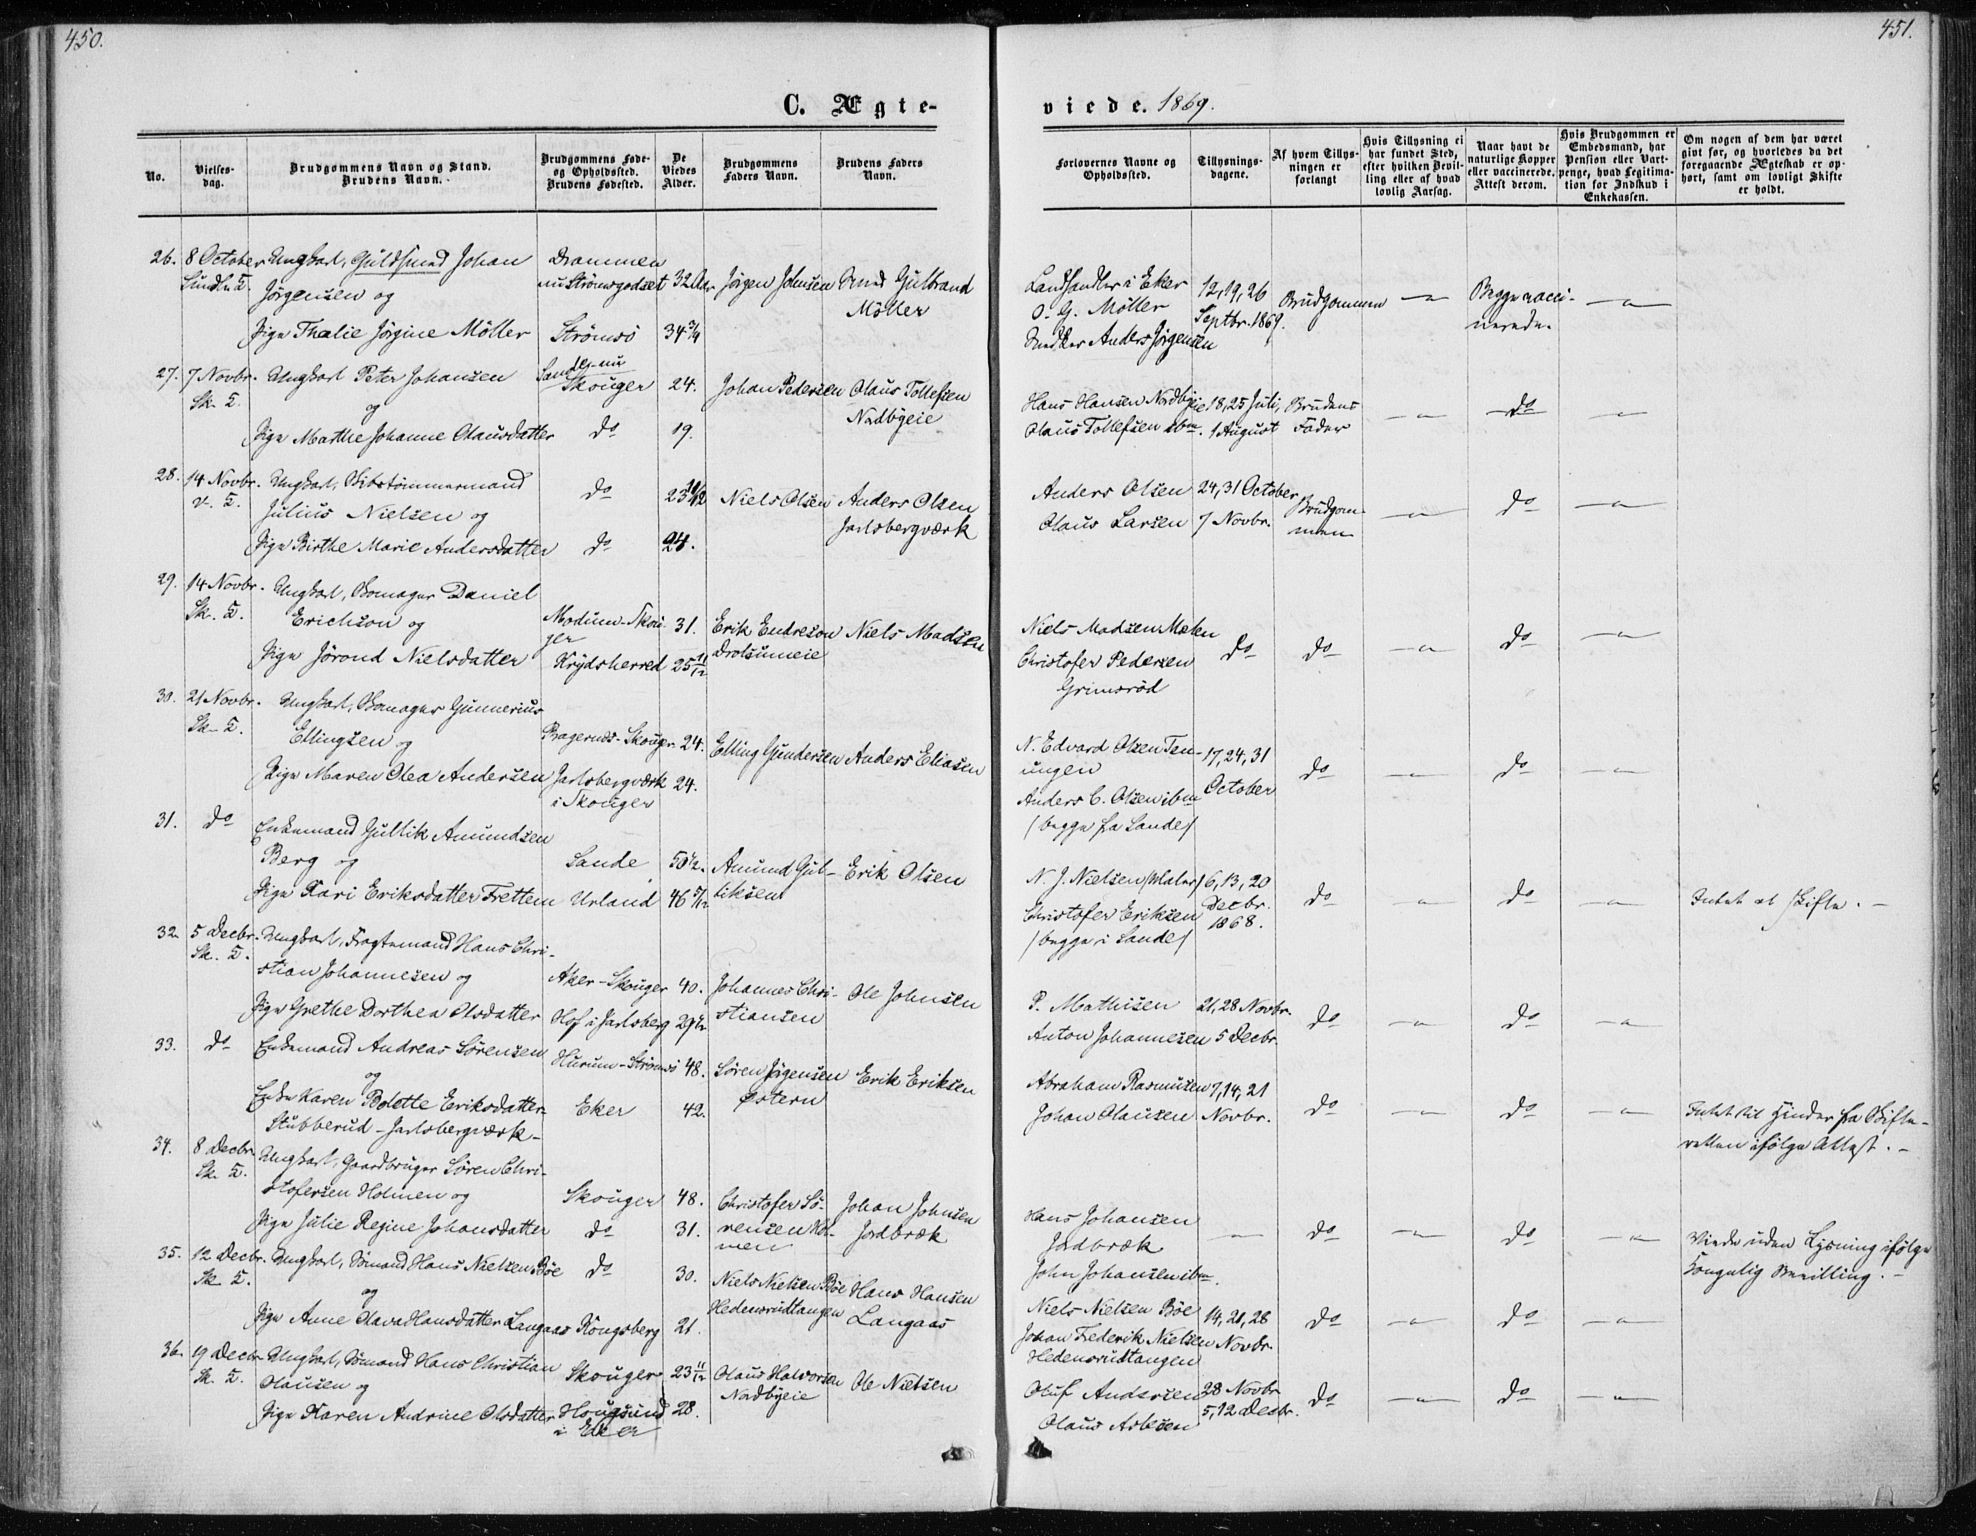 450.
451.
C. Ægte-
viede. 1869.
No.
Vielses-
dag.
Brudgommens Navn og Stand.
Brudens Navn.
Brudgommens Føde-
og Opholdssted.
Brudens Fødested.
De
Viedes
Alder.
Brudgommens
Faders Navn.
Brudens Faders
Navn.
Forlovernes Navne og
Opholdssted.
Tillysnings-
dagene.
Af hvem Tillys-
ningen er
forlangt
Hvis Tillysning ei
har fundet Sted,
efter hvilken Bevil-
ling eller af hvad
lovlig Aarsag.
Naar havt de
naturlige Kopper
eller vaccinerede.
Attest derom.
Hvis Brudgommen er
Embedsmand, har
Pension eller Vart-
penge, hvad Legitima-
tion for Indskud i
Enkekassen.
Om nogen af dem har været
givt før, og hvorledes da det
foregaaende Ægteskab er op-
hørt, samt om lovligt Skifte
er holdt.
26. 8 October Ungkarl, Guldsmed Johan Drammen
nu Strömsgodset 32 Aar Jörgen Johnsen Gulbrand
Jörgensen og Möller
Pige Thalie Jörgine Möller Strömsö 34 3/4
Landhandler i Eker 12, 19, 26
O. G. Möller Septbr. 1869. Brudgommen —"— Begge vacci- —"—
Anders Jörgensen nerede.
27. 7 Novbr. Ungkarl Peter Johansen Sande, nu
Sk. K. Skouger 24. Johan Pedersen Olaus Tollefsen
og Nordbyeie
Pige Marthe Johanne Olausdatter do 19.
Hans Hansen Nordbyeie 18, 25 Juli, Brudens —"— do —"—
Olaus Tollefsen ibm. 1 August Fader
28. 14 Novbr. Ungkarl,
Julius Nielsen og do 23 10/12 Niels Olsen Anders Olsen
Pige Birthe Marie Andersdatter do 24. Jarlsbergværk
Anders Olsen 24, 31 October Brudgom- —"— do —"—
Olaus Larsen 7 Novbr. men
29. 14 Novbr. Ungkarl, Skomager Daniel
Sk. K. Erichson og Modum-Skou- 31. Erik Endreson Niels Madsen
ger
Pige Jörond Nielsdatter Krydsherred 25 11/12
Niels Madsen do do —"— do —"—
Christofer Pedersen
Grimsröd
30. 21 Novbr. Ungkarl, Skomager Gunnerius
Sk. K. Ellingsen og Bragernes-Skouger 24. Elling Gundersen Anders Eliasen
Pige Maren Olea Andersen Jarlsbergværk 24.
i Skouger
N. Edvard Olsen Ten- 17, 24, 31
ungen October do —"— do —"—
Anders C. Olsen ibm
/begge fra Sande/
31. do Enkemand Gullik Amundsen
Berg og Sande 50 1/2. Amund Gul- Erik Olsen
Pige Kari Eriksdatter Frettem Urland 46 5/12 liksen
N. J. Nielsen 6, 13, 20
Christofer Eriksen Decbr. do —"— do —"— Intet at skifte. —
/begge i Sande/ 1868.
32. 5 Decbr. Ungkarl, Fragtemand Hans Chri-
Sk. K. stian Johannesen og Aker-Skouger 40. Johannes Chri- Ole Johnsen
Pige Grethe Dorthea Olsdatter Hof i Jarlsberg 29 1/2 stiansen
P. Mathisen 21, 28 Novbr. do —"— do —"—
Anton Johannesen 5 Decbr.
33. do Enkemand Andreas Sörensen Hurum-Strömsö 48. Sören Jörgensen Erik Eriksen
og Östern
Enke Karen Bolette Eriksdatter Eker 42.
Stubberud-Jarlsbergværk-
Abraham Rasmusen 7, 14, 21
Johan Olausen Novbr. do —"— do —"— Intet til Hinder fra Skifte-
retten ifölge Attest. —
34. 8 Decbr. Ungkarl, Gaardbruger Sören Chri-
Sk. K. stofersen Holmen og Skouger 48. Christofer Sö- Johan Johnsen
Pige Julie Regine Johansdatter do 31. rensen Hol- Jordbræk
men
Hans Johansen
Jordbræk — do —"— do —"— Viede uden Lysning ifölge
John Johansen ibm. Kongelig Bevilling. —
35. 12 Decbr. Ungkarl, Sömand Hans Nielsen Böe do 30. Niels Nielsen Böe Hans Hansen
Sk. K. og Hedensrudtangen Langaas
Pige Anne Olava Hansdatter Langaas Kongsberg 21.
Niels Nielsen Böe 14, 21, 28 do —"— do —"—
Johan Frederik Nielsen Novbr.
Hedensrudtangen
36. 19 Decbr. Ungkarl, Sömand Hans Christian Skouger 23 11/12 Olaus Halvorsen Ole Nielsen
Sk. K. Olausen og Nordbyeie
Pige Karen Andrine Olsdatter Hougsund 28.
i Eker
Oluf Andersen 28 Novbr. do —"— do —"—
Olaus Asbesen 5, 12 Decbr.